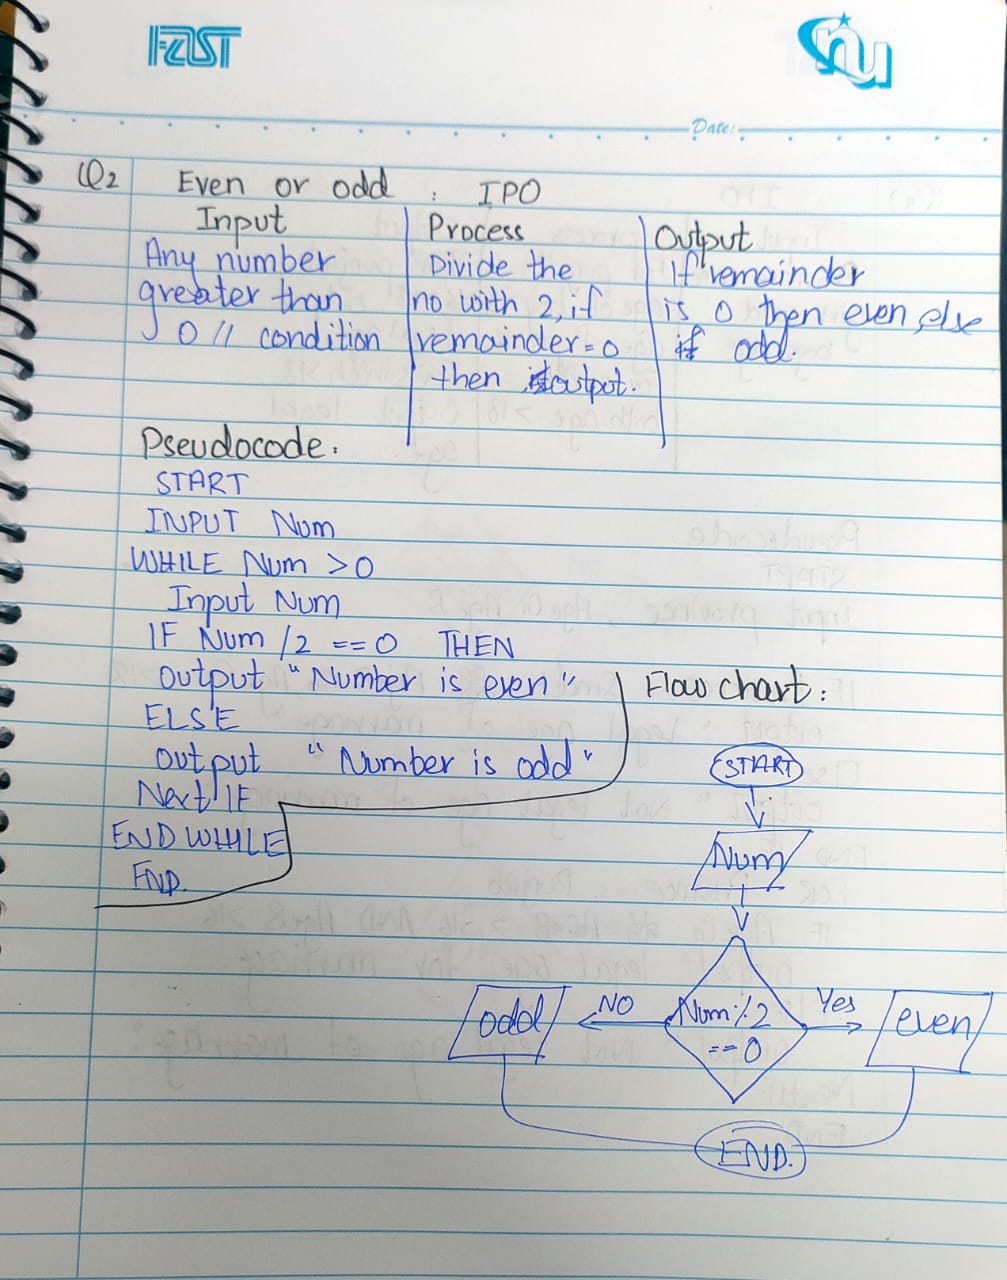 FAST
nu
Date:
Q2 Even or odd : IPO
Input
Any number
greater than
0 // condition
Process
Divide the
no with 2, if
remainder = 0
then output.
Output
If remainder
is 0 then even, else
if odd.
Pseudocode.
START
INPUT Num
WHILE Num > 0
Input Num
IF Num /2 == 0 THEN
output "Number is even"
ELSE
output "Number is odd"
Next IF
END WHILE
END.
Flow chart:
START
Num
Num % 2
== 0
NO
odd
Yes
even
END.